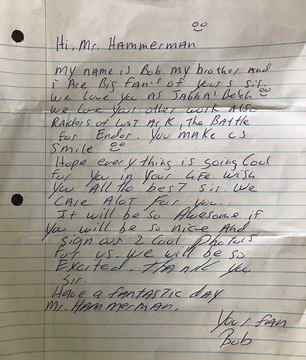 Hi, Mr. Hammerman
my name is Bob my brother and
i are Big fan's of yours sir
we love you as Jabba' Belch
we love your other work also
Raiders of Lost Ark, the Battle
for Endor. you make us
smile
Hope everything is going Cool
for you in your Life wish
you all the best sir. we
care alot for you.
It will be so Awesome if
you will be so nice and
sign our 2 Cool Photos
for us. we will be so
Excited. Thank you
sir.
Have a fantastic day
Mr. Hammerman.
Your fan
Bob